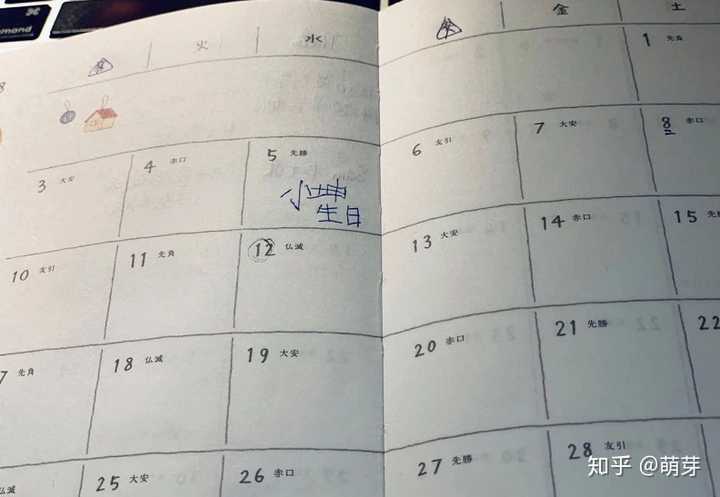 ⌘
mmand
火
水
金
土
8
1 先負
3 大安
4 赤口
5 先勝
6 友引
7 大安
8 赤口
小坤
生日
10 友引
11 先負
12 仏滅
13 大安
14 赤口
15 先勝
7 先負
18 仏滅
19 大安
20 赤口
21 先勝
22
仏滅
25 大安
26 赤口
27 先勝
28 友引
知乎 @萌芽